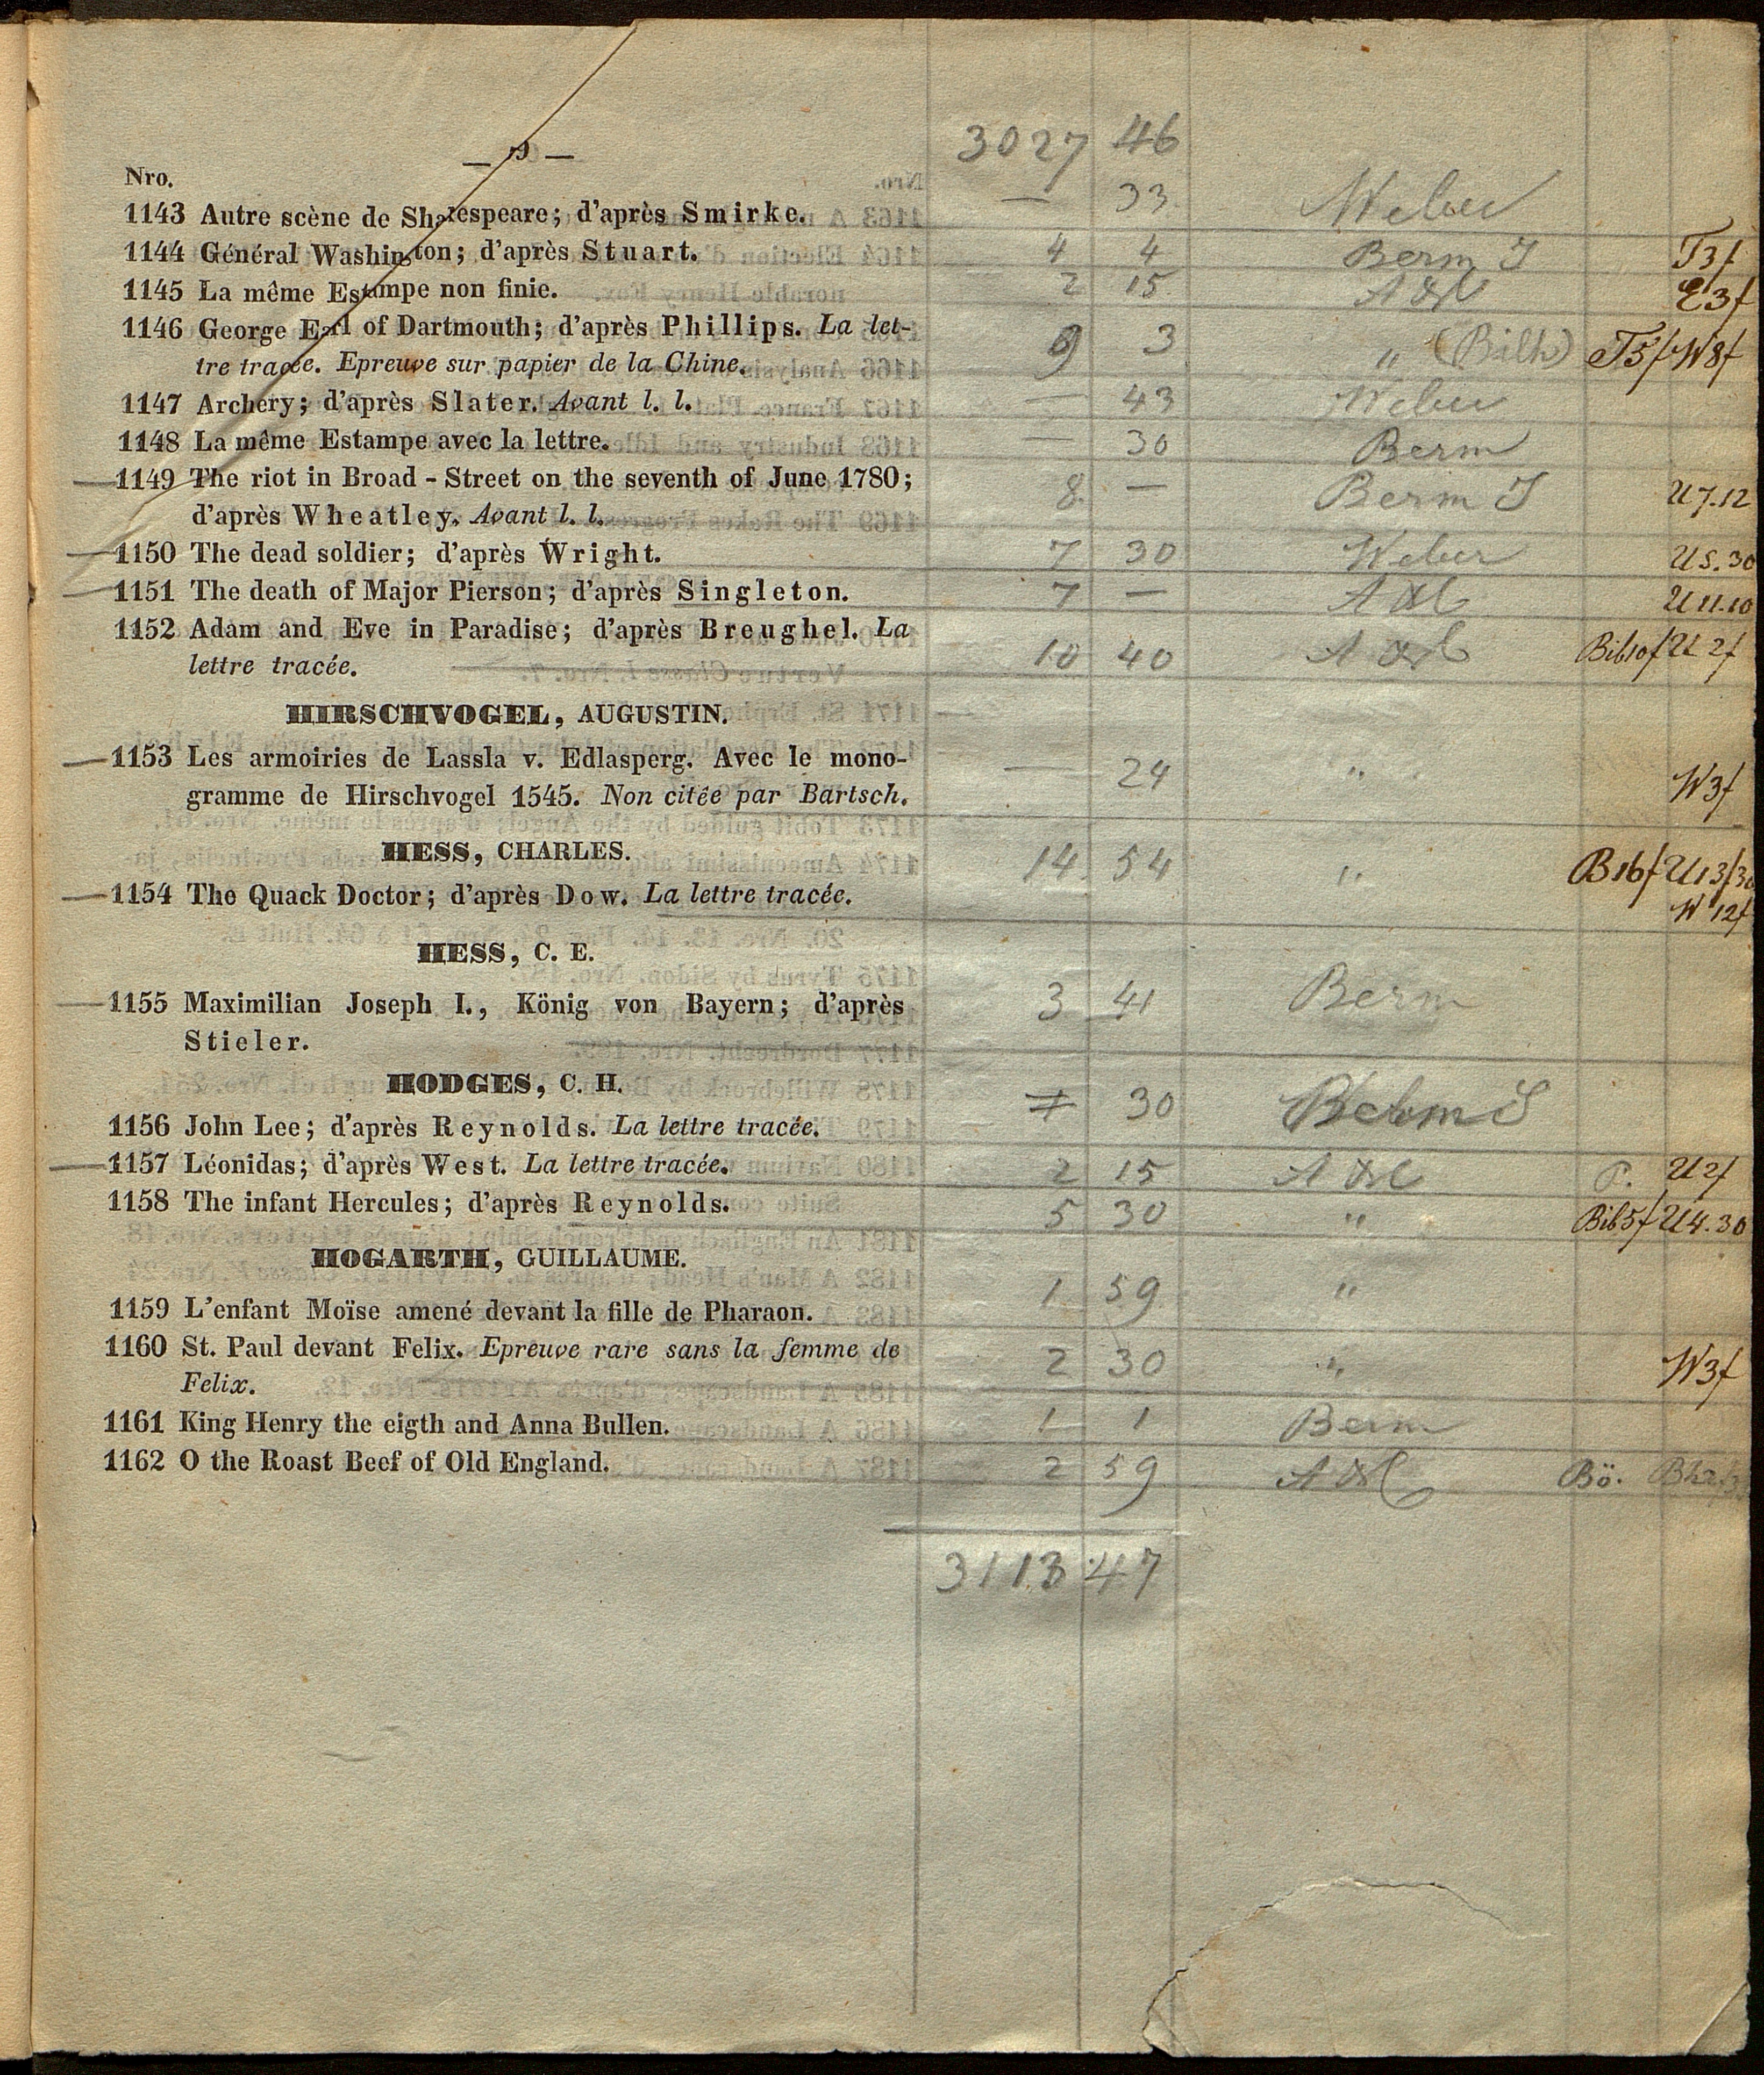 3027 46
— 9 —
Nro.
1143 Autre scène de Shakespeare; d'après Smirke. — 33 Weber
1144 Général Washington; d'après Stuart. 4 4 Berm S T3f
1145 La même Estampe non finie. 2 15 E3f
1146 George Earl of Dartmouth; d'après Phillips. La let- 9 3 " T5f W8f
tre tracée. Epreuve sur papier de la Chine.
1147 Archery; d'après Slater. Avant l. l. — 43 Weber
1148 La même Estampe avec la lettre. — 30 Berm
—1149 The riot in Broad-Street on the seventh of June 1780; 8 — Berm S U7.12
d'après Wheatley. Avant l. l.
—1150 The dead soldier; d'après Wright. 7 30 Weber U5.30
—1151 The death of Major Pierson; d'après Singleton. 7 — U11.10
1152 Adam and Eve in Paradise; d'après Breughel. La 10 40 Bib10f U2f
lettre tracée.
HIRSCHVOGEL, AUGUSTIN.
—1153 Les armoiries de Lassla v. Edlasperg. Avec le mono- — 24 " W3f
gramme de Hirschvogel 1545. Non citée par Bartsch.
HESS, CHARLES.
—1154 The Quack Doctor; d'après Dow. La lettre tracée. 14 54 " B16f U13f30
W12f
HESS, C. E.
—1155 Maximilian Joseph I., König von Bayern; d'après 3 41 Berm
Stieler.
HODGES, C. H.
1156 John Lee; d'après Reynolds. La lettre tracée. 30
—1157 Léonidas; d'après West. La lettre tracée. 2 15 P. U2f
1158 The infant Hercules; d'après Reynolds. 5 30 " Bib5f U4.30
HOGARTH, GUILLAUME.
1159 L'enfant Moïse amené devant la fille de Pharaon. 1 59 "
1160 St. Paul devant Felix. Epreuve rare sans la femme de 2 30 " W3f
Felix.
1161 King Henry the eigth and Anna Bullen. 1 1 Berm
1162 O the Roast Beef of Old England. 2 59 Bö.
3113 47